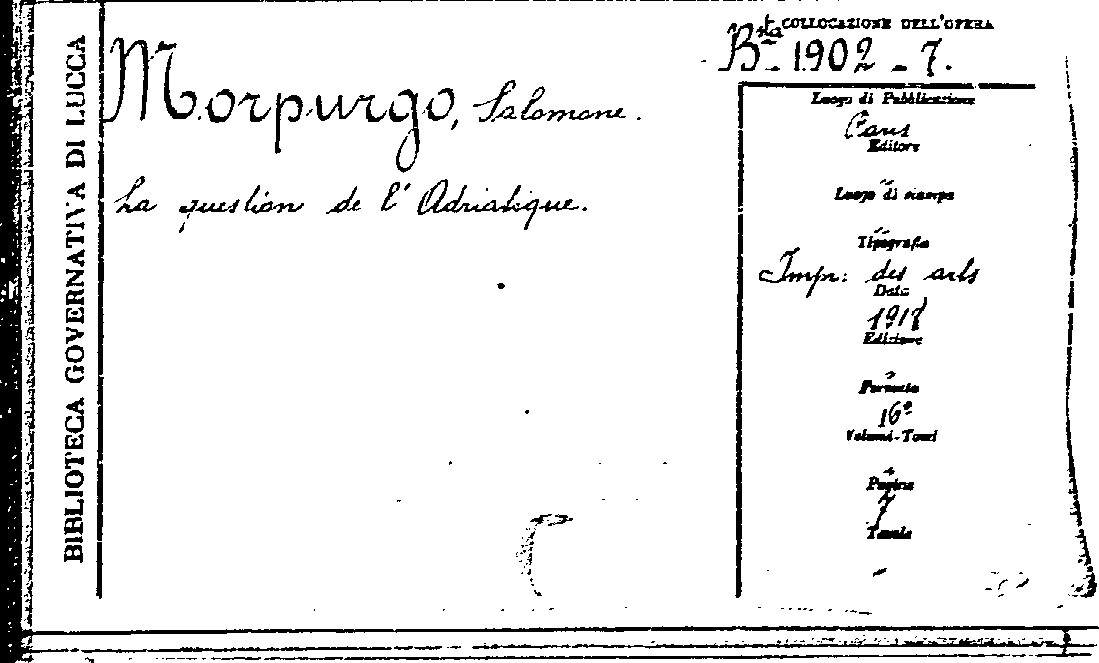 BIBLIOTECA GOVERNATIVA DI LUCCA
COLLOCAZIONE DELL'OPERA
Bsta 1902 - 7.
Morpurgo, Salomone.
La question de l'Adriatique.
Luogo di Pubblicazione
Paris
Editore
Luogo di stampa
Tipografia
Impr: des arts
Data
Edizione
Formato
16°
Volumi-Tomi
Pagine
7
Tavole